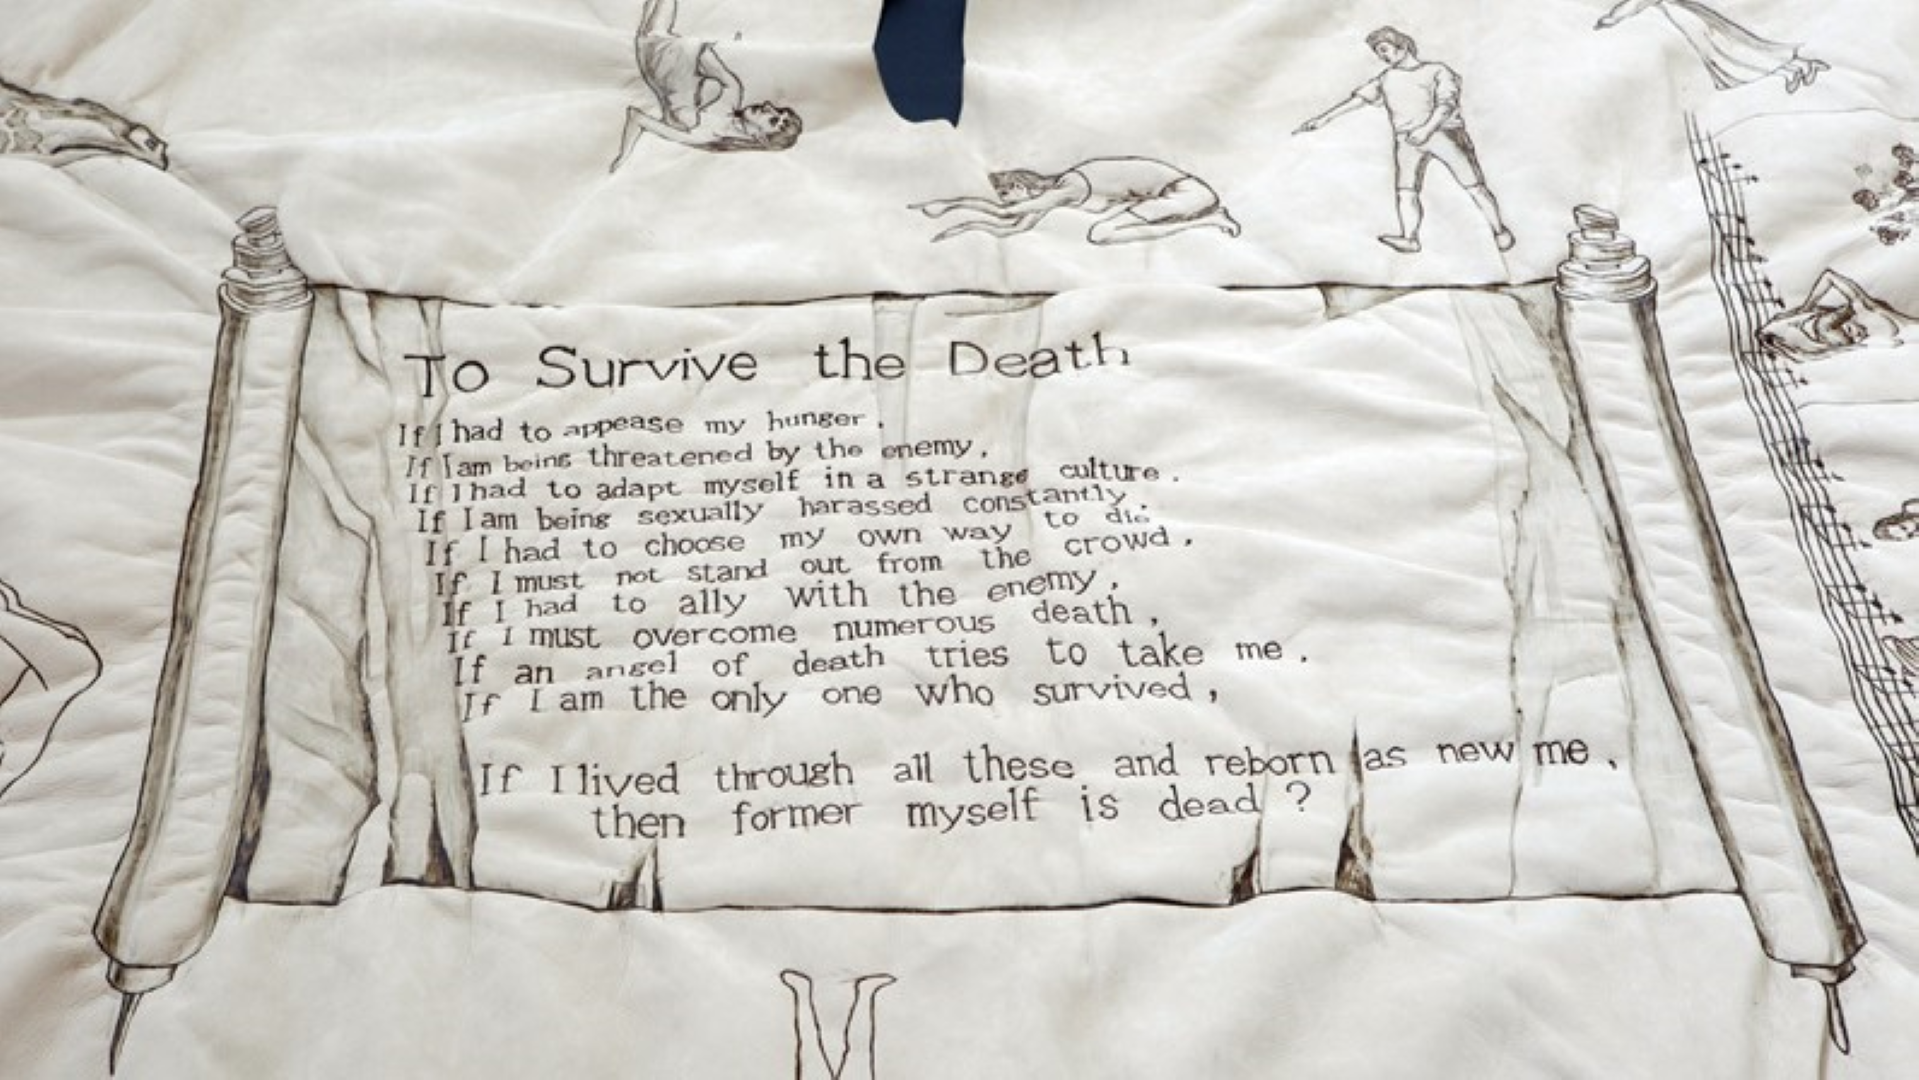 To Survive the Death
If I had to appease my hunger,
If I am being threatened by the enemy,
If I had to adapt myself in a strange culture.
If I am being sexually harassed constantly.
If I had to choose my own way to die
If I must not stand out from the crowd.
If I had to ally with the enemy,
If I must overcome numerous death,
If an angel of death tries to take me.
If I am the only one who survived,
If I lived through all these and reborn as new me,
then former myself is dead?